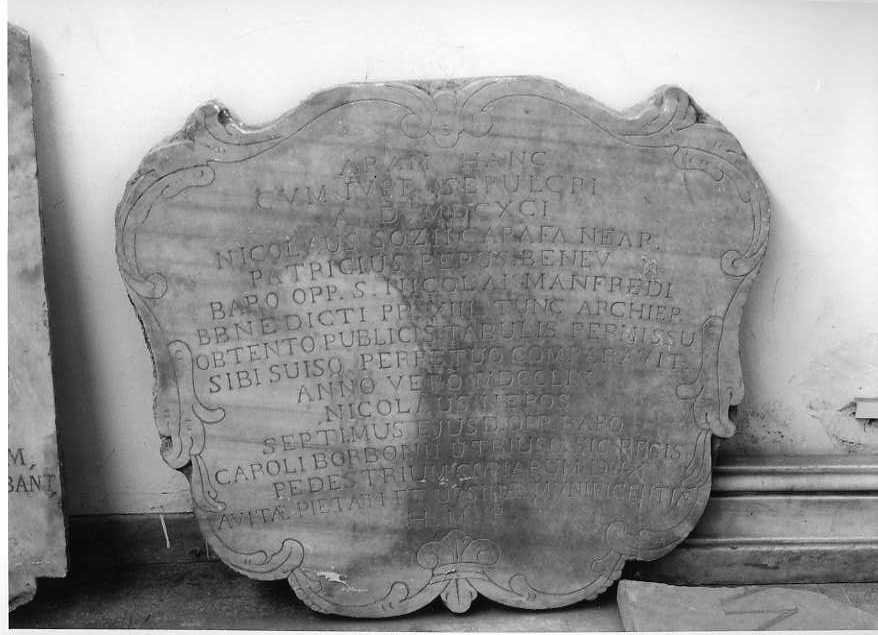 ARAM HANC
CVM IVRE SEPULCRI
A. D. MDCXCI
NICOLAUS COZZI CARAFA NEAP.
PATRICIUS REPUS BENEV
BAPO OPP. S. NICOLAI MANFREDI
BBNEDICTI PP. XIII TUNC ARCHIEP.
OBTENTO PUBLICIS TABULIS PERMISSU
SIBI SUISQ PERPETUO COMPARAVIT
ANNO VERO
NICOLAUS NEPOS
SEPTIMUS EJUSD. OPP. BAPO
CAROLI BORBONII UTRIUSQ SIC. REGIS
PEDESTRIUM DUX
AVITÆ PIETATI ET MUNIFICENTIÆ
M,
BANT,